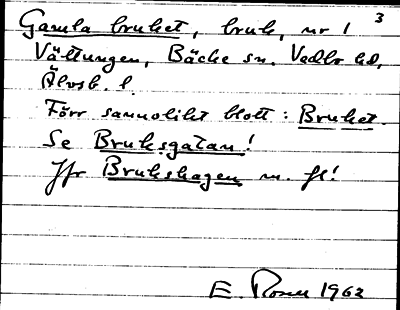 3
Gamla bruket, bruk, nr 1
Vättungen, Bäcke sn. Vedbo hd,
Älvsb. l.
Förr sannolikt blott: Bruket.
Se Bruksgatan!
Jfr Brukshagen m. fl!
E. Rosell 1962